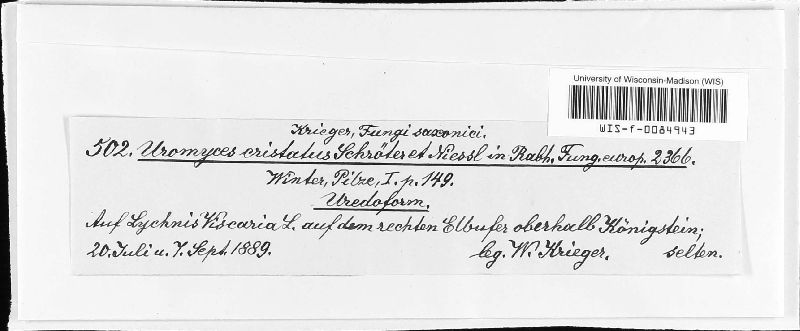 University of Wisconsin-Madison (WIS)
WIS-f-0084943
Krieger, Fungi saxonici.
502. Uromyces cristatus Schröter et Niessl in Rabh. Fung. europ. 2366.
Winter, Pilze, I. p. 149.
Uredoform.
Auf Lychnis Viscaria L. auf dem rechten Elbufer oberhalb Königstein;
20. Juli u. 7. Sept. 1889. leg. W. Krieger. selten.